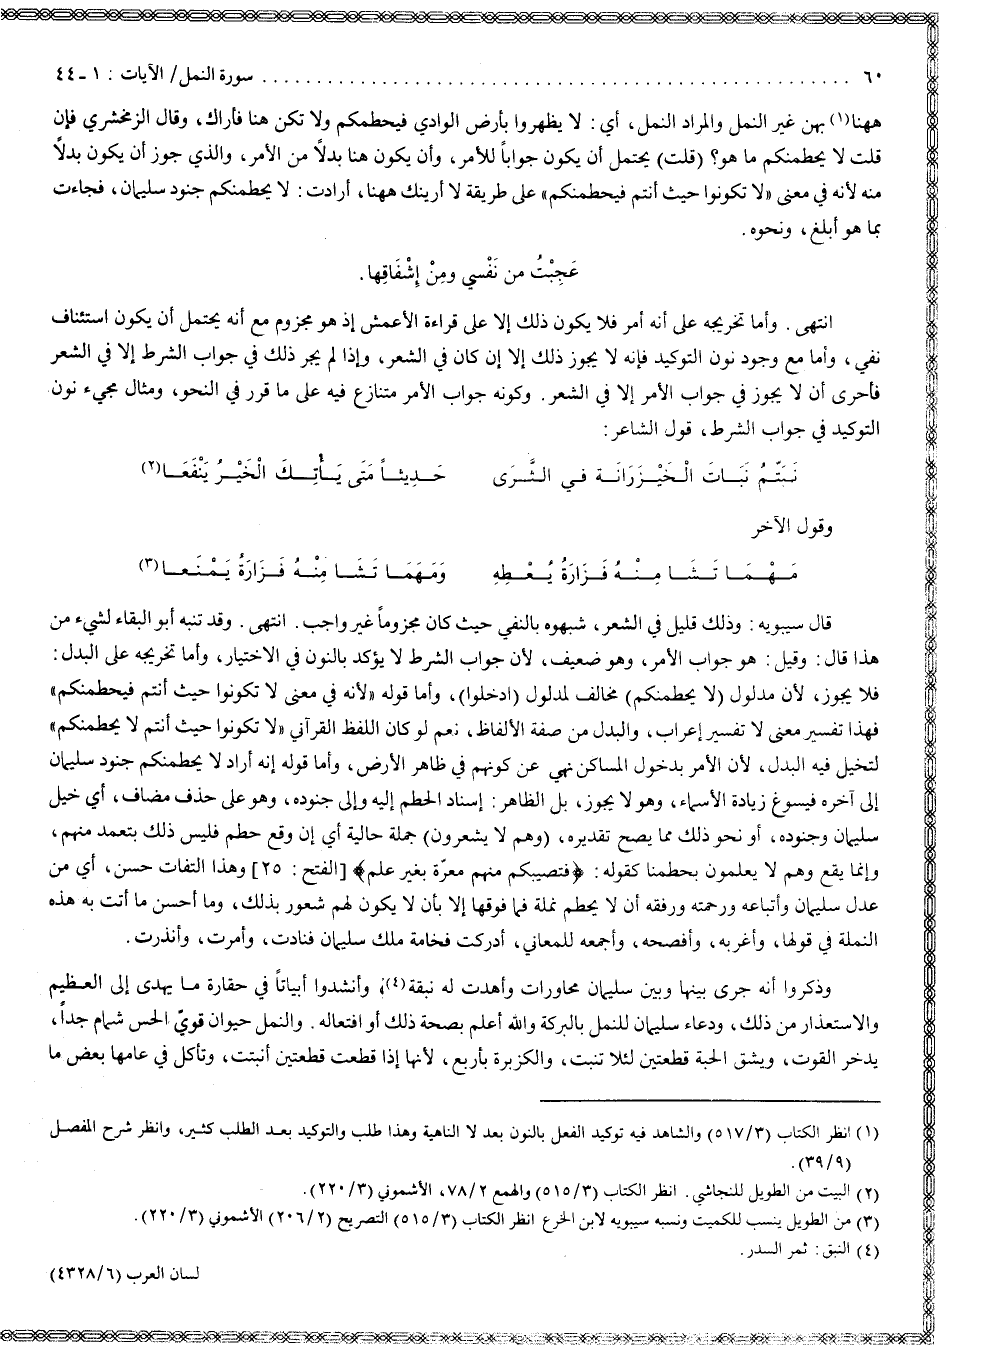 ٦٠ . . . . . . . . . . . . . . . . . . . . . . . . . . . . . . . . . . . . . . . . . . . . . . . . . . . . . . سورة النمل/ الآيات : ١ ـ ٤٤
ههنا(١) بهن غير النمل والمراد النمل، أي: لا يظهروا بأرض الوادي فيحطمكم ولا تكن هنا فأراك، وقال الزمخشري فإن
قلت لا يحطمنكم ما هو؟ (قلت) يحتمل أن يكون جواباً للأمر، وأن يكون هنا بدلاً من الأمر، والذي جوز أن يكون بدلاً
منه لأنه في معنى «لا تكونوا حيث أنتم فيحطمنكم» على طريقة لا أرينك ههنا، أرادت: لا يحطمنكم جنود سليمان، فجاءت
بما هو أبلغ، ونحوه.
عَجِبْتُ من نَفْسي ومِنْ إِشْفَاقِها.
انتهى. وأما تخريجه على أنه أمر فلا يكون ذلك إلا على قراءة الأعمش إذ هو مجزوم مع أنه يحتمل أن يكون استئناف
نفي، وأما مع وجود نون التوكيد فإنه لا يجوز ذلك إلا إن كان في الشعر، وإذا لم يجر ذلك في جواب الشرط إلا في الشعر
فأحرى أن لا يجوز في جواب الأمر إلا في الشعر. وكونه جواب الأمر متنازع فيه على ما قرر في النحو، ومثال مجيء نون
التوكيد في جواب الشرط، قول الشاعر:
نَبَتُّمْ نَبَاتَ الْخَيْزَرَانَة في الثَّرَى حَدِيثاً مَتَى يَأْتِكَ الْخَيْرُ يَنْفَعَا(٢)
وقول الآخر
مَهْمَا تَشَا مِنْهُ فَزَارَةُ يُعْطِهِ وَمَهَمَا تَشَا مِنْهُ فَزَارَةُ يَمْنَعا(٣)
قال سيبويه: وذلك قليل في الشعر، شبهوه بالنفي حيث كان مجزوماً غير واجب. انتهى. وقد تنبه أبو البقاء لشيء من
هذا قال: وقيل: هو جواب الأمر، وهو ضعيف، لأن جواب الشرط لا يؤكد بالنون في الاختيار، وأما تخريجه على البدل:
فلا يجوز، لأن مدلول (لا يحطمنكم) مخالف لمدلول (ادخلوا)، وأما قوله «لأنه في معنى لا تكونوا حيث أنتم فيحطمنكم»
فهذا تفسير معنى لا تفسير إعراب، والبدل من صفة الألفاظ، نعم لو كان اللفظ القرآني «لا تكونوا حيث أنتم لا يحطمنكم»
لتخيل فيه البدل، لأن الأمر بدخول المساكن نهي عن كونهم في ظاهر الأرض، وأما قوله إنه أراد لا يحطمنكم جنود سليمان
إلى آخره فيسوغ زيادة الأسماء، وهو لا يجوز، بل الظاهر: إسناد الحطم إليه وإلى جنوده، وهو على حذف مضاف، أي خيل
سليمان وجنوده، أو نحو ذلك مما يصح تقديره، (وهم لا يشعرون) جملة حالية أي إن وقع حطم فليس ذلك بتعمد منهم،
وإنما يقع وهم لا يعلمون بحطمنا كقوله: ﴿فتصيبكم منهم معرّة بغير علم﴾ [الفتح: ٢٥] وهذا التفات حسن، أي من
عدل سليمان وأتباعه ورحمته ورفقه أن لا يحطم نملة فما فوقها إلا بأن لا يكون لهم شعور بذلك، وما أحسن ما أتت به هذه
النملة في قولها، وأغربه، وأفصحه، وأجمعه للمعاني، أدركت فخامة ملك سليمان فنادت، وأمرت، وأنذرت.
وذكروا أنه جرى بينها وبين سليمان محاورات وأهدت له نبقة(٤)، وأنشدوا أبياتاً في حقارة ما يهدى إلى العظيم
والاستعذار من ذلك، ودعاء سليمان للنمل بالبركة والله أعلم بصحة ذلك أو افتعاله. والنمل حيوان قويّ الحس شمام جداً،
يدخر القوت، ويشق الحبة قطعتين لئلا تنبت، والكزبرة بأربع، لأنها إذا قطعت قطعتين أنبتت، وتأكل في عامها بعض ما
(١) انظر الكتاب (٥١٧/٣) والشاهد فيه توكيد الفعل بالنون بعد لا الناهية وهذا طلب والتوكيد بعد الطلب كثير، وانظر شرح المفصل
(٣٩/٩).
(٢) البيت من الطويل للنجاشي. انظر الكتاب (٥١٥/٣) والهمع ٧٨/٢، الأشموني (٢٢٠/٣).
(٣) من الطويل ينسب للكميت ونسبه سيبويه لابن الخرع انظر الكتاب (٥١٥/٣) التصريح (٢٠٦/٢) الأشموني (٢٢٠/٣).
(٤) النبق: ثمر السدر.
لسان العرب (٤٣٢٨/٦)